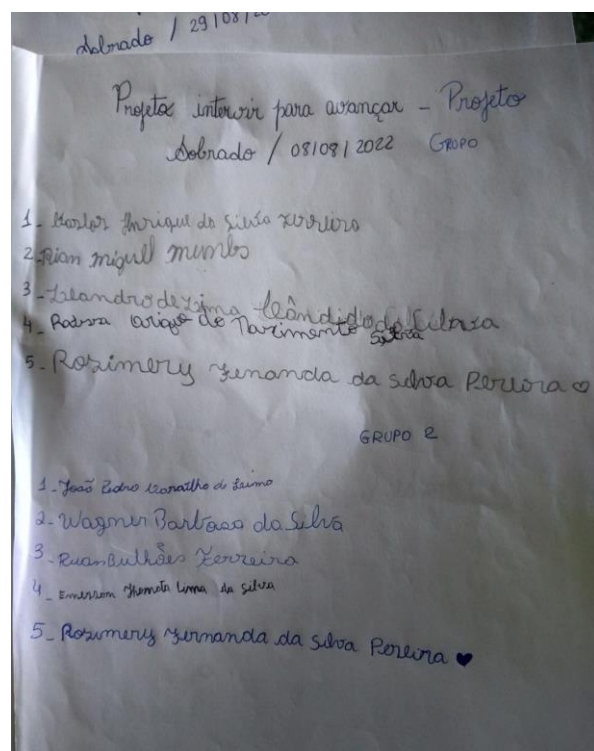 Sobrado / 29/08/20
Projeto intervir para avançar - Projeto
Sobrado / 08/08/2022 GRUPO
1- Enrique da Silva Ferreira
2- Rian miguel
3- Leandro de Lima Cândido da Silva
4- do Narimento Silva
5- Rosimery Fenanda da Silva Pereira ♡
GRUPO 2
1- João Pedro Carvalho de
2- Wagner Barbosa da Silva
3- Ruan Bulhões Ferreira
4- Emerson Lima da Silva
5- Rosimery Fernanda da Silva Pereira ♥